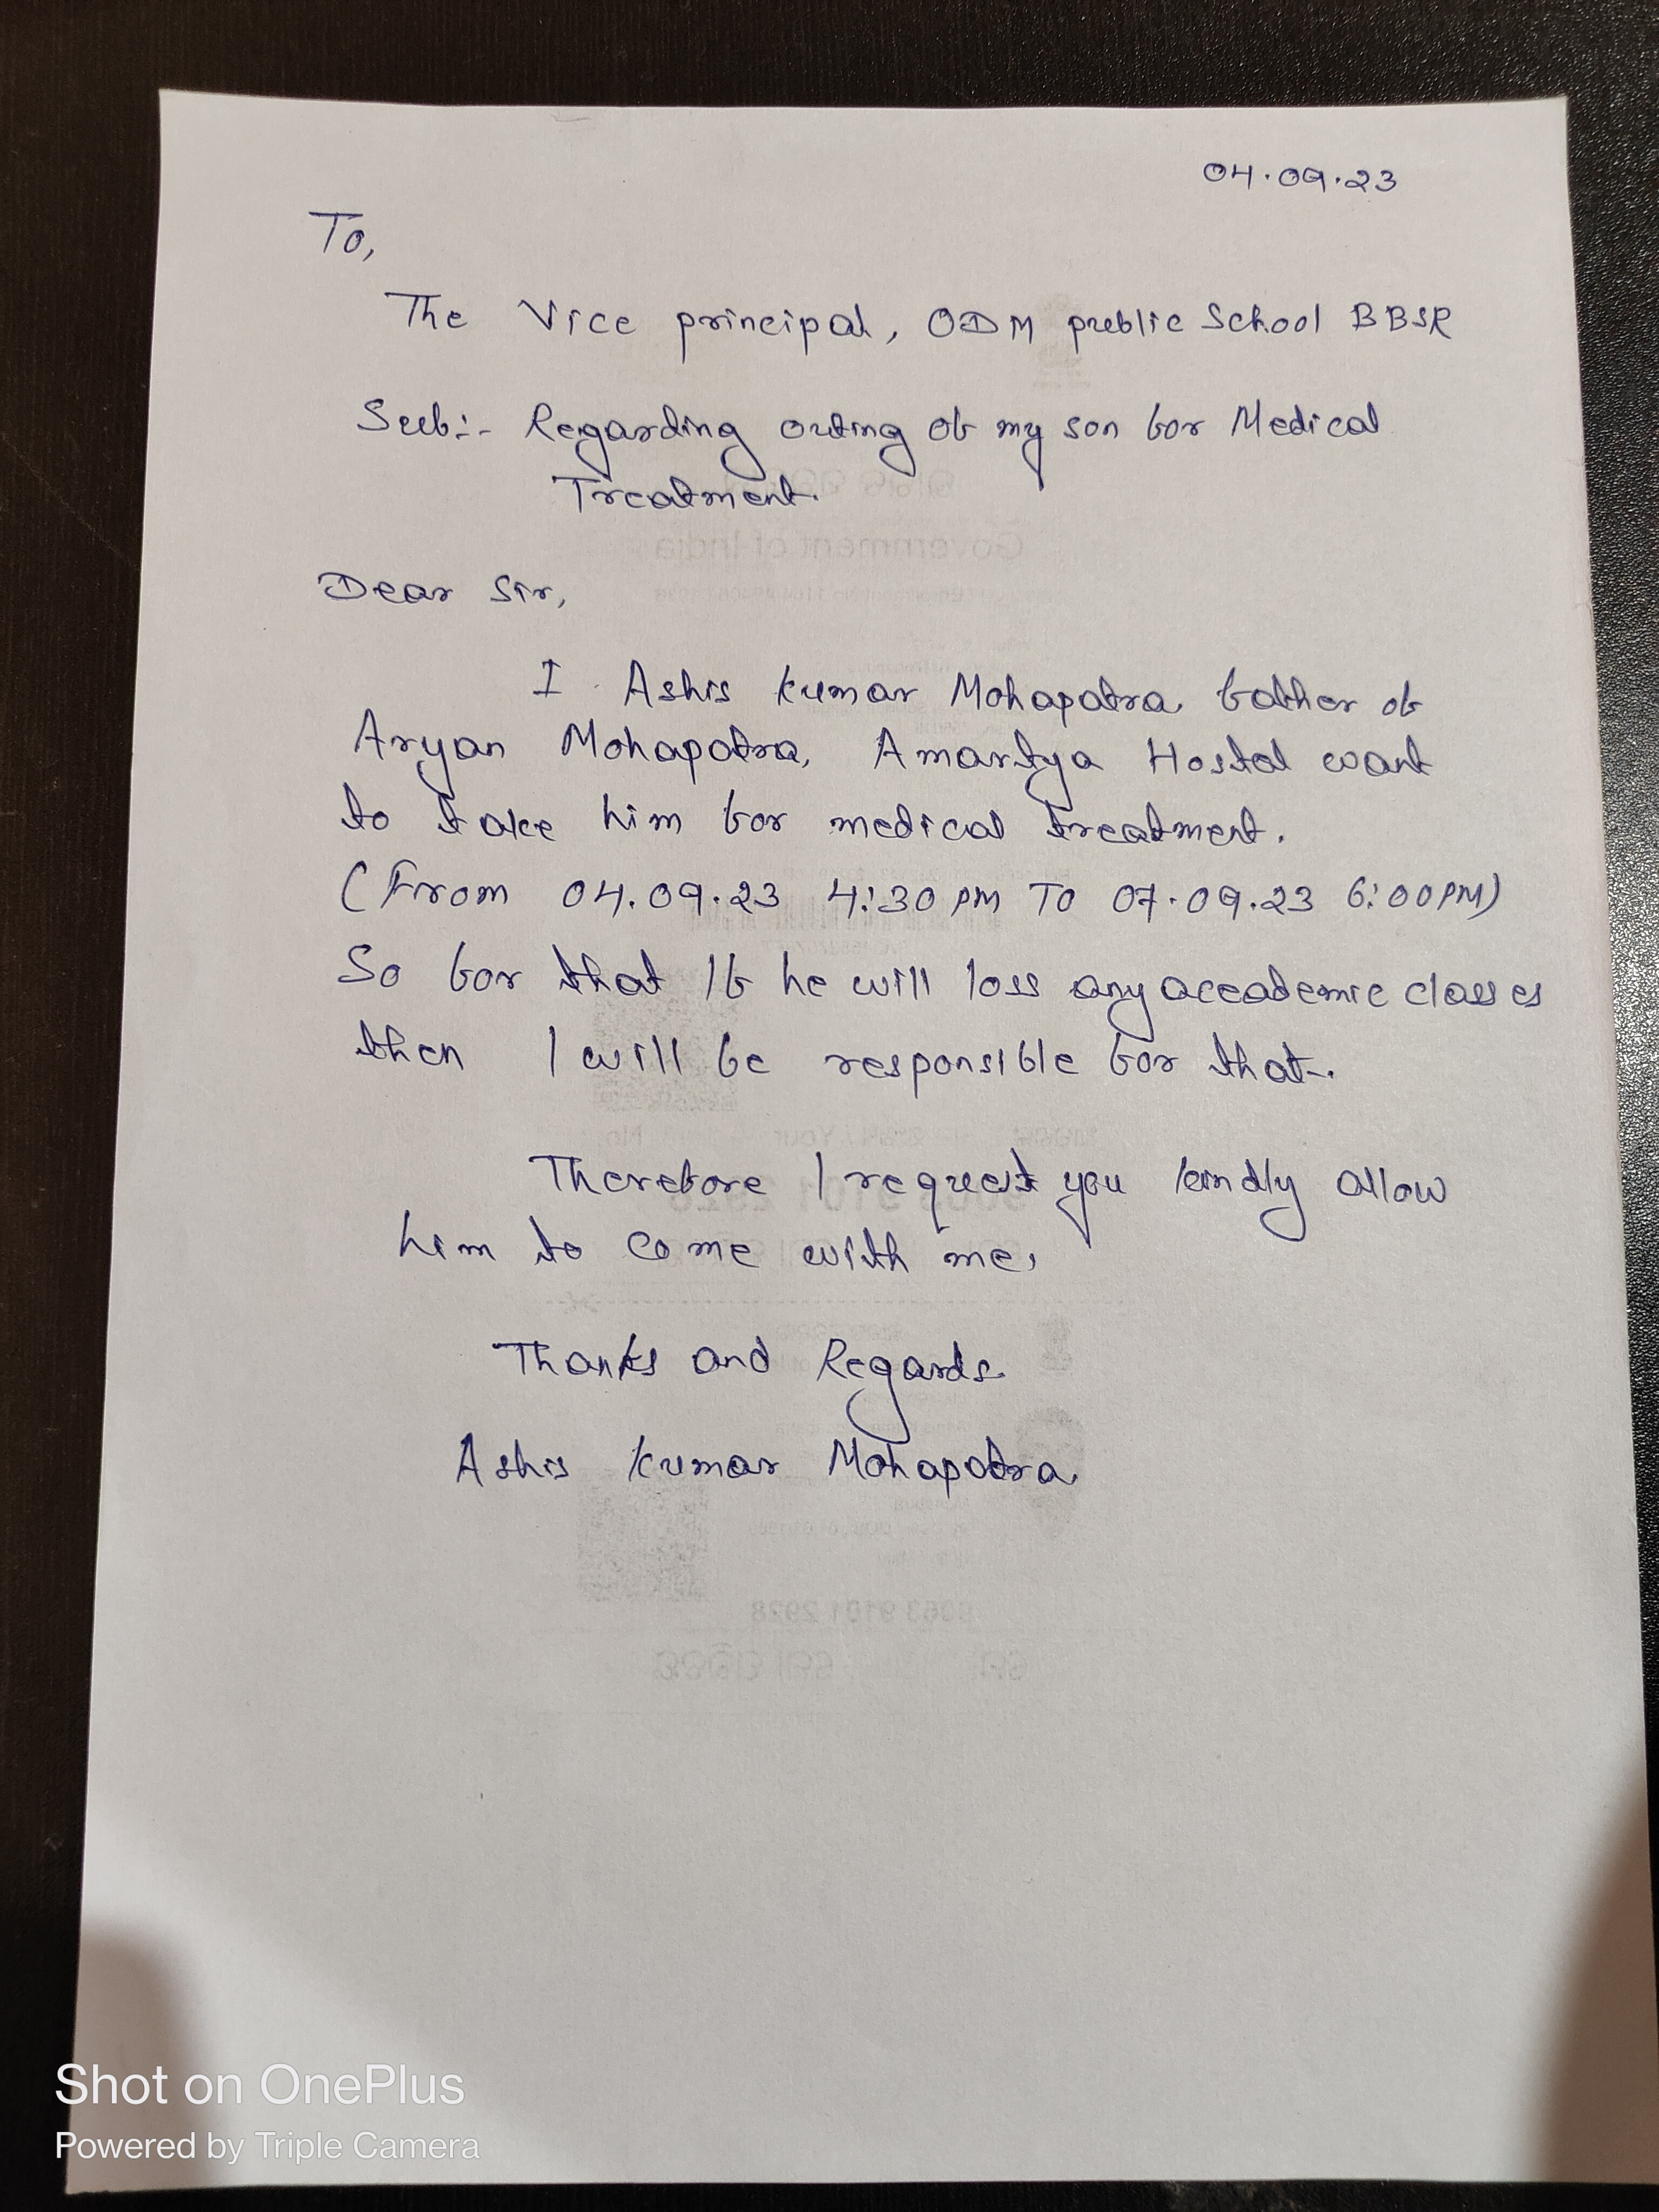 04.09.23
To,
The Vice principal, ODM public School BBSR
Sub:- Regarding outing of my son for Medical
Treatment.
Dear Sir,
I Ashis Kumar Mohapatra father of
Aryan Mohapatra, Amartya Hostel want
to take him for medical treatment.
(From 04.09.23 4:30 PM TO 07.09.23 6:00PM)
So for that If he will loss any accademic classes
then I will be responsible for that.
Therefore I request you kindly allow
him to come with me.
Thanks and Regards
Ashis Kumar Mohapatra
Shot on OnePlus
Powered by Triple Camera